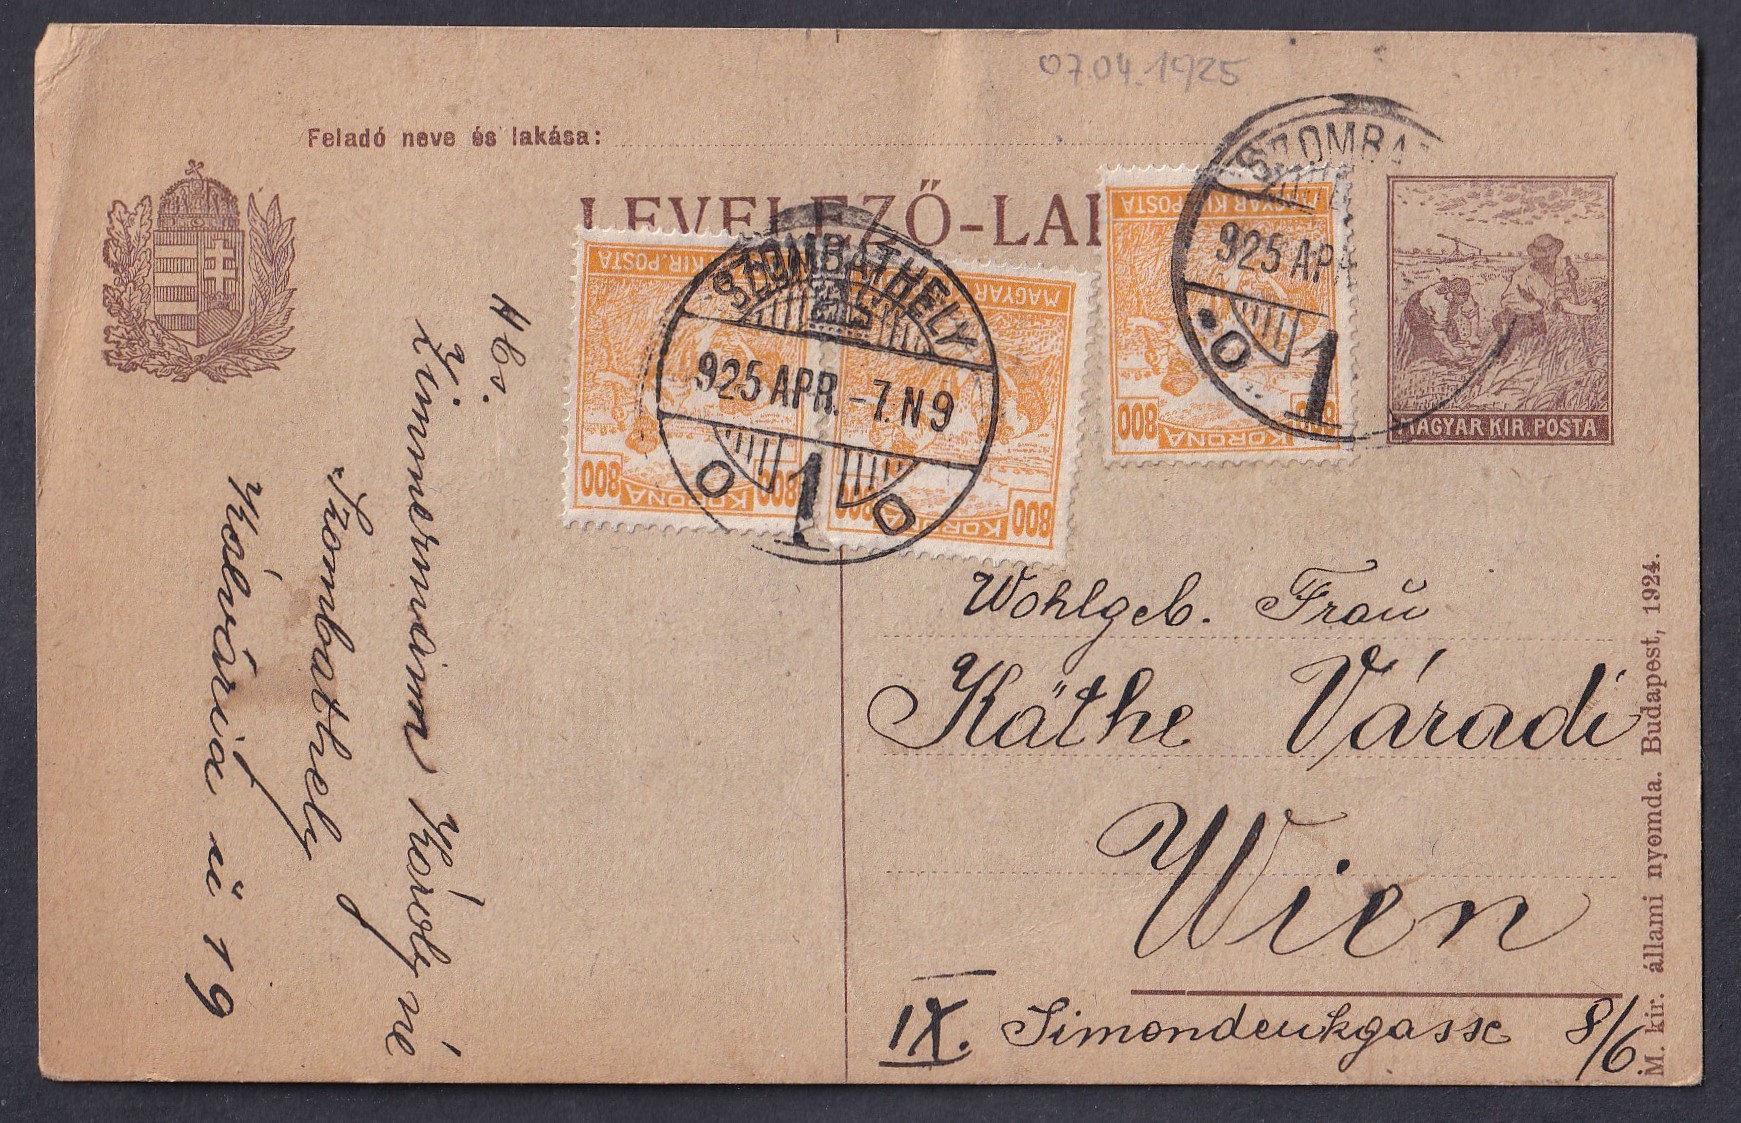 07.04.1925
Feladó neve és lakása:
LEVELEZŐ-LA
MAGYAR KIR. POSTA
800 KORONA 800
KIR. POSTA
800 KORONA 800
MAGYAR
KORONA 800
SZOMBATHELY
925 APR. -7. N 9
1
SZOMBAT
925 APR
1
MAGYAR KIR. POSTA
Abs.
Zimmermann Károlyné
Szombathely
Kálvária ú 19
Wohlgeb. Fraŭ
Käthe Váradi
Wien
IX. Simondenkgasse 8/6.
M. kir. állami nyomda. Budapest, 1924.